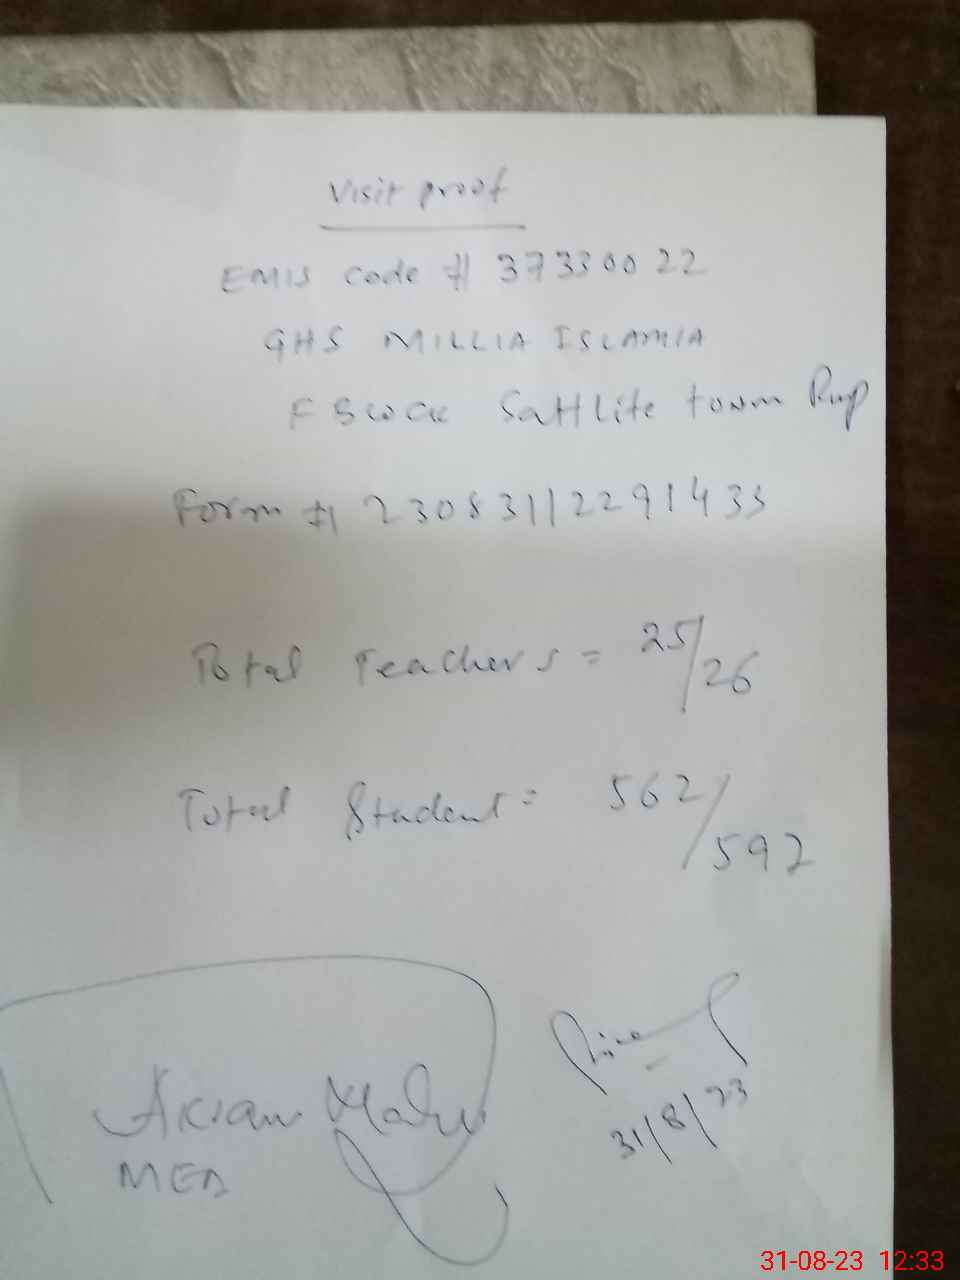 Visit proof
EMIS Code # 37330022
GHS MILLIA ISLAMIA
F Block Sattlite town Rwp
Form # 230831122291433
Total Teachers = 25/26
Total Student = 562/592
Akram
MEA
31/8/23
31-08-23 12:33